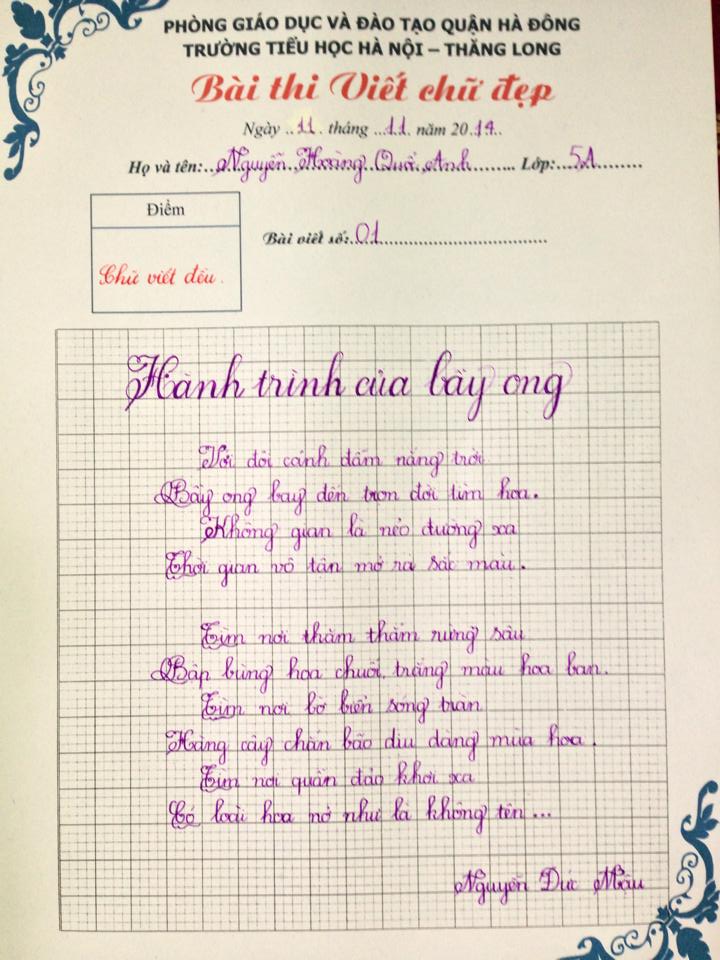 PHÒNG GIÁO DỤC VÀ ĐÀO TẠO QUẬN HÀ ĐÔNG
TRƯỜNG TIỂU HỌC HÀ NỘI – THĂNG LONG
Bài thi Viết chữ đẹp
Ngày ..11.. tháng ...11.. năm 2014..
Họ và tên:..Nguyễn Hoàng Quế Anh......... Lớp:...5A.........
Điểm
Bài viết số:.01...................................
Chữ viết đều.
Hành trình của bầy ong
Với đôi cánh đẫm nắng trời
Bầy ong bay đến trọn đời tìm hoa.
Không gian là nẻo đường xa
Thời gian vô tận mở ra sắc màu.
Tìm nơi thăm thẳm rừng sâu
Bập bùng hoa chuối, trắng màu hoa ban.
Tìm nơi bờ biển sóng tràn
Hàng cây chắn bão dịu dàng mùa hoa.
Tìm nơi quần đảo khơi xa
Có loài hoa nở như là không tên...
Nguyễn Đức Mậu